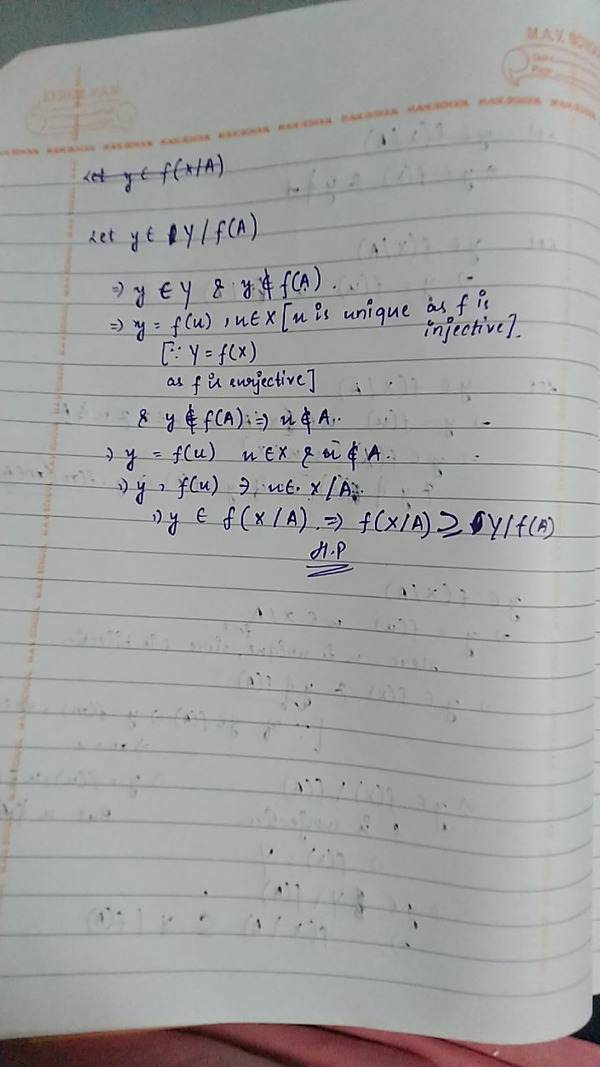 M.A.V. SCHOOL
Date
Page
Let y ∈ f(X/A)
Let y ∈ Y/f(A)
⇒ y ∈ Y & y ∉ f(A).
⇒ y = f(u), u ∈ X [u is unique as f is
injective].
[∵ Y = f(X)
as f is surjective]
& y ∉ f(A) ⇒ u ∉ A.
⇒ y = f(u) u ∈ X & u ∉ A.
⇒ y = f(u) ∋ u ∈ X/A.
⇒ y ∈ f(X/A). ⇒ f(X/A) ⊇ Y/f(A)
H.P